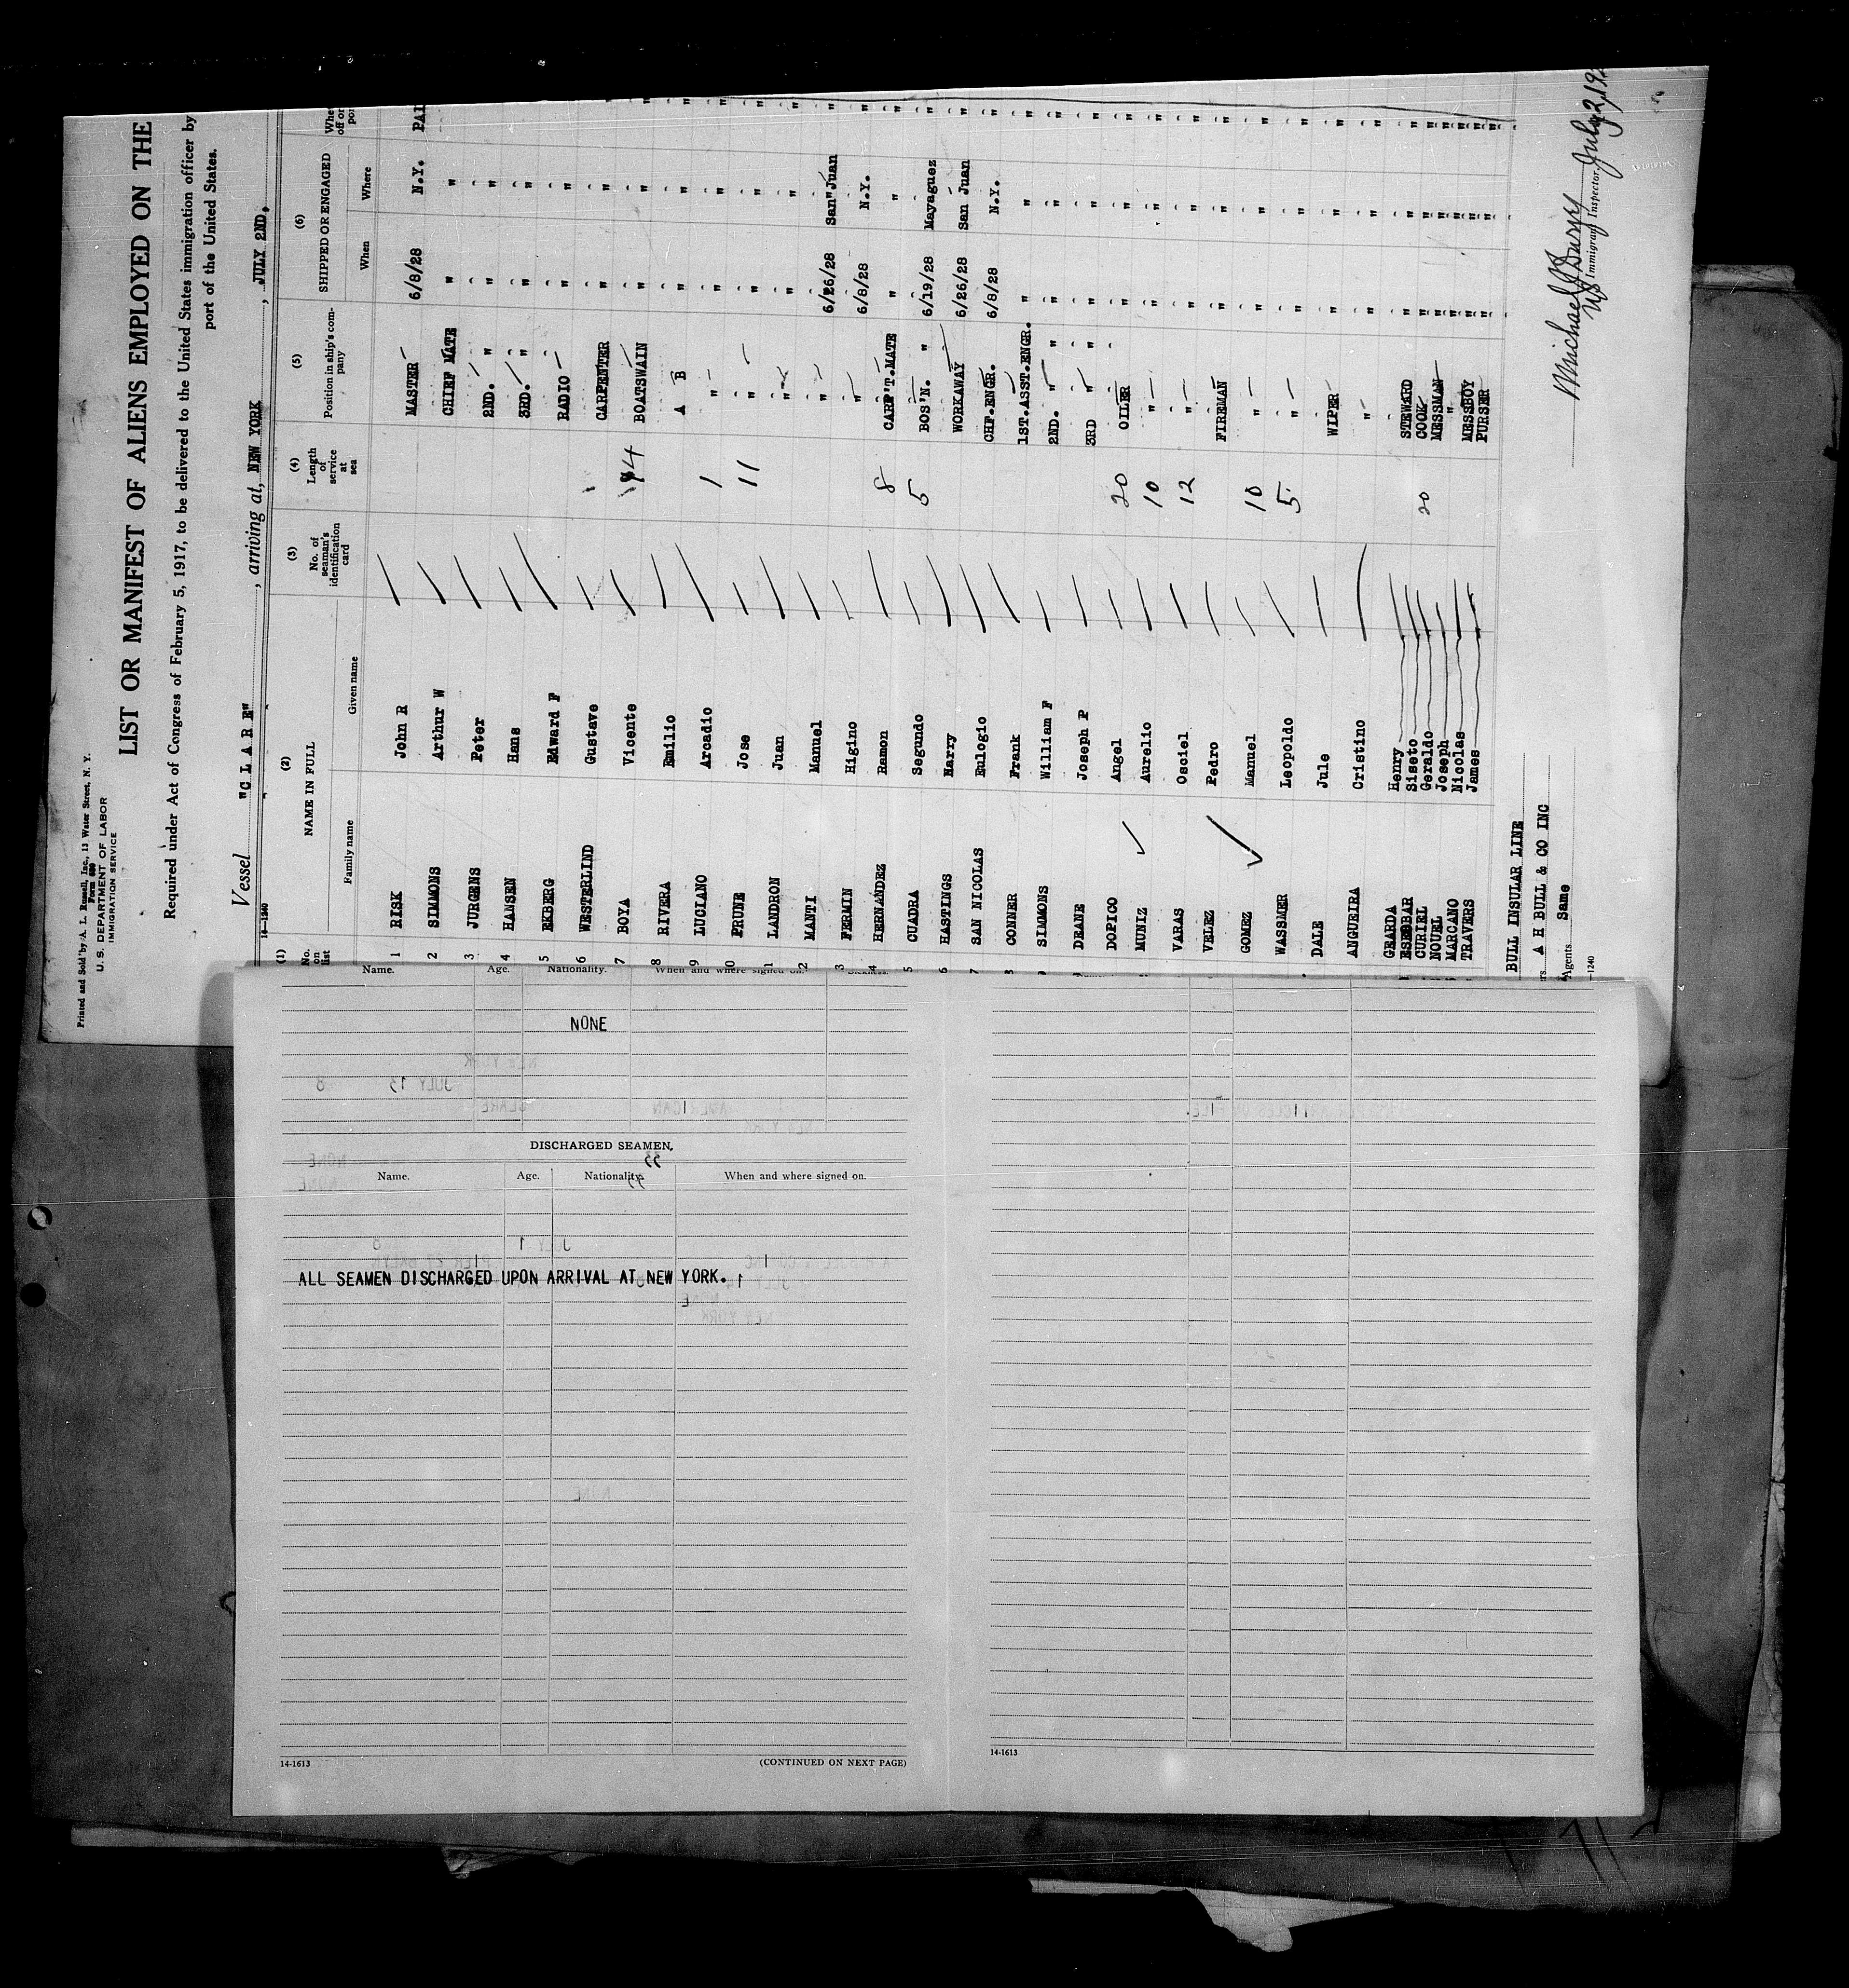 Printed and Sold by A. L. Russell, Inc., 13 Water Street, N. Y.
Form 680
U. S. DEPARTMENT OF LABOR
IMMIGRATION SERVICE
LIST OR MANIFEST OF ALIENS EMPLOYED ON THE
Required under Act of Congress of February 5, 1917, to be delivered to the United States immigration officer by
port of the United States.
Vessel "C L A R E", arriving at, NEW YORK, JULY 2ND,
14—1240
(1) (2) (3) (4) (5) (6)
No. on list NAME IN FULL No. of seaman's identification card Length of service at sea Position in ship's company SHIPPED OR ENGAGED
Family name Given name When Where
1 RISK John R MASTER 6/8/28 N.Y. PAI
2 SIMMONS Arthur W CHIEF MATE " " "
3 JURGENS Peter 2ND. " " " "
4 HANSEN Hans 3RD. " " " "
5 EKBERG Edward F RADIO " " "
6 WESTERLIND Gustave CARPENTER " " "
7 BOYA Vicente 14 BOATSWAIN " " "
8 RIVERA Emilio A B " " "
9 LUCIANO Arcadio 1 " " " "
0 PRUNE Jose 11 " " " "
1 LANDRON Juan " " " "
2 MANTI Manuel " 6/26/28 San Juan "
3 FERMIN Higino " 6/8/28 N.Y. "
4 HERNANDEZ Ramon 8 CARP'T.MATE " " "
5 CUADRA Segundo 5 BOS'N. " 6/19/28 Mayaguez "
6 HASTINGS Harry WORKAWAY 6/26/28 San Juan "
7 SAN NICOLAS Eulogio CHF.ENGR. 6/8/28 N.Y. "
8 CONNER Frank 1ST.ASST.ENGR. " " "
9 SIMMONS William F 2ND. " " " " "
DEANE Joseph P 3RD " " " " "
DOPICO Angel 20 OILER " " "
MUNIZ Aurelio 10 " " " "
VARAS Osciel 12 " " " "
VELEZ Pedro FIREMAN " " "
GOMEZ Manuel 10 " " " "
WASSMER Leopoldo 5 " " " "
DALE Jule WIPER " " "
ANGUEIRA Cristino " " " "
GEARDA Henry STEWARD " " "
ESCOBAR Siseto 20 COOK " " "
CURIEL Geraldo MESSMAN " " "
NOUEL Joseph " " " "
MARCANO Nicolas MESSBOY " " "
TRAVERS James PURSER " " "
BULL INSULAR LINE
A H BULL & CO INC
Agents Same
—1240
Michael J
US Immigrant Inspector. July 2, 192
Name. Age. Nationality. When and where signed on.
NONE
DISCHARGED SEAMEN,
Name. Age. Nationality. When and where signed on.
ALL SEAMEN DISCHARGED UPON ARRIVAL AT NEW YORK.
14-1613 (CONTINUED ON NEXT PAGE)
14-1613